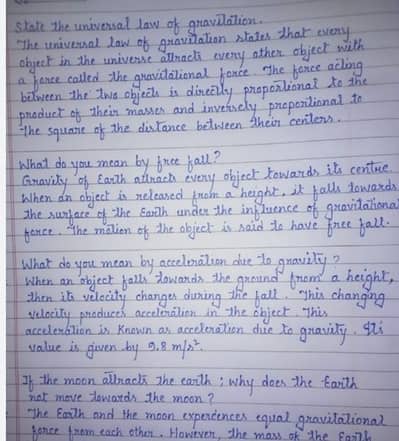 State the universal law of gravitation.
"The universal law of gravitation states that every
object in the universe attracts every other object with
a force called the gravitational force. The force acting
between the two objects is directly proportional to the
product of their masses and inversely proportional to
the square of the distance between their centers.
What do you mean by free fall?
Gravity of Earth attracts every object towards its centre.
When an object is released from a height, it falls towards
the surface of the Earth under the influence of gravitational
force. The motion of the object is said to have free fall.
What do you mean by acceleration due to gravity?
When an object falls towards the ground from a height,
then its velocity changes during the fall. This changing
velocity produces acceleration in the object. This
acceleration is known as acceleration due to gravity. Its
value is given by 9.8 m/s².
If the moon attracts the earth; why does the Earth
not move towards the moon?
"The Earth and the moon experences equal gravitational
force from each other. However, the mass of the Earth